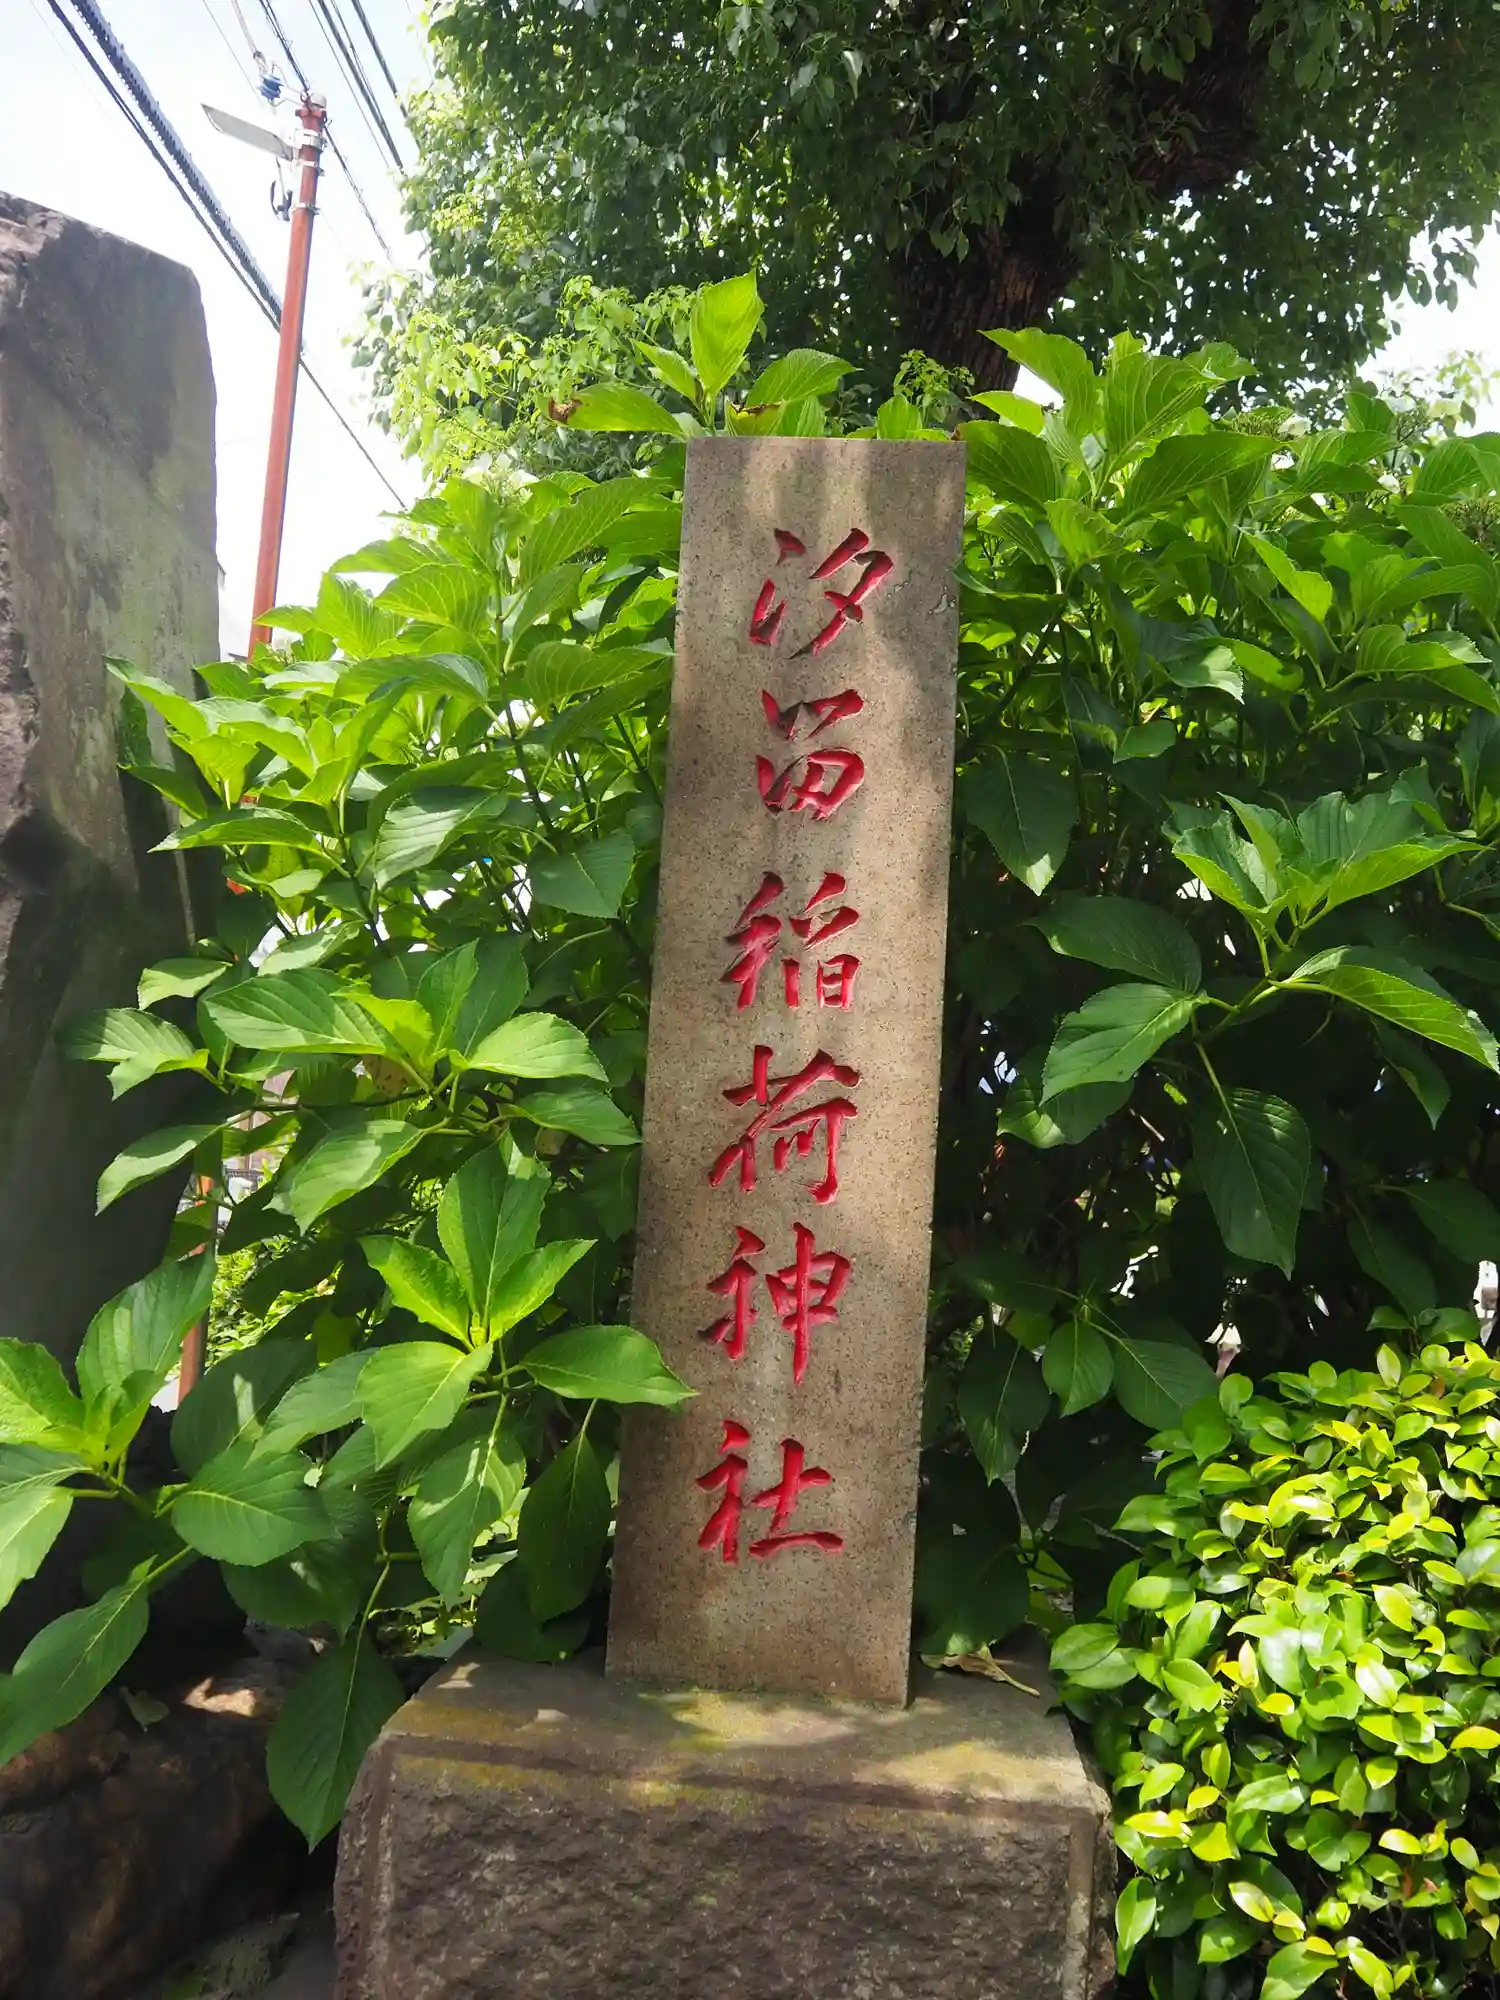 汐留稲荷神社